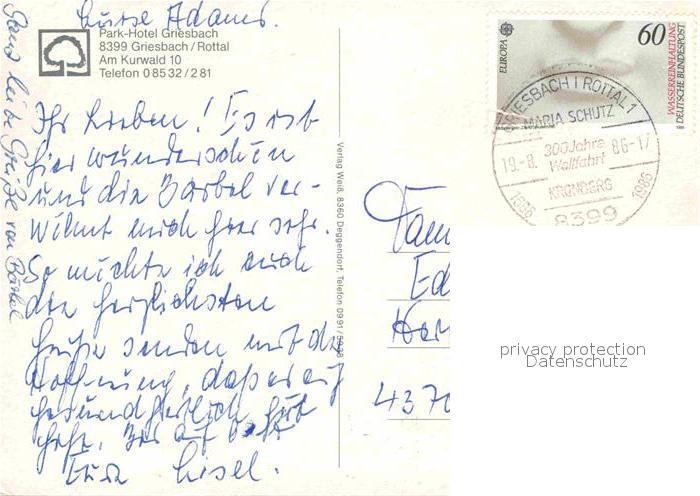 Liebe Adams.
Park-Hotel Griesbach
8399 Griesbach/Rottal
Am Kurwald 10
Telefon 0 85 32/2 81
Ihr Lieben! Es ist
hier wunderschön
und die Bärbel ver-
wöhnt mich hier sehr.
So möchte ich euch
die herzlichsten
Grüße senden mit der
Hoffnung, daß es euch
gesundheitlich gut
geht.
Eure Liesel.
Ganz liebe Grüße von Bärbel
Verlag Weiß, 8360 Deggendorf, Telefon 09 91/
EUROPA
60
WASSERREINHALTUNG
DEUTSCHE BUNDESPOST
GRIESBACH I ROTTAL 1
MARIA SCHUTZ
300 Jahre
Wallfahrt
19.-8. 86-17
KRONBERG
1686 1986
8399
Fam
Ed
437
privacy protection
Datenschutz